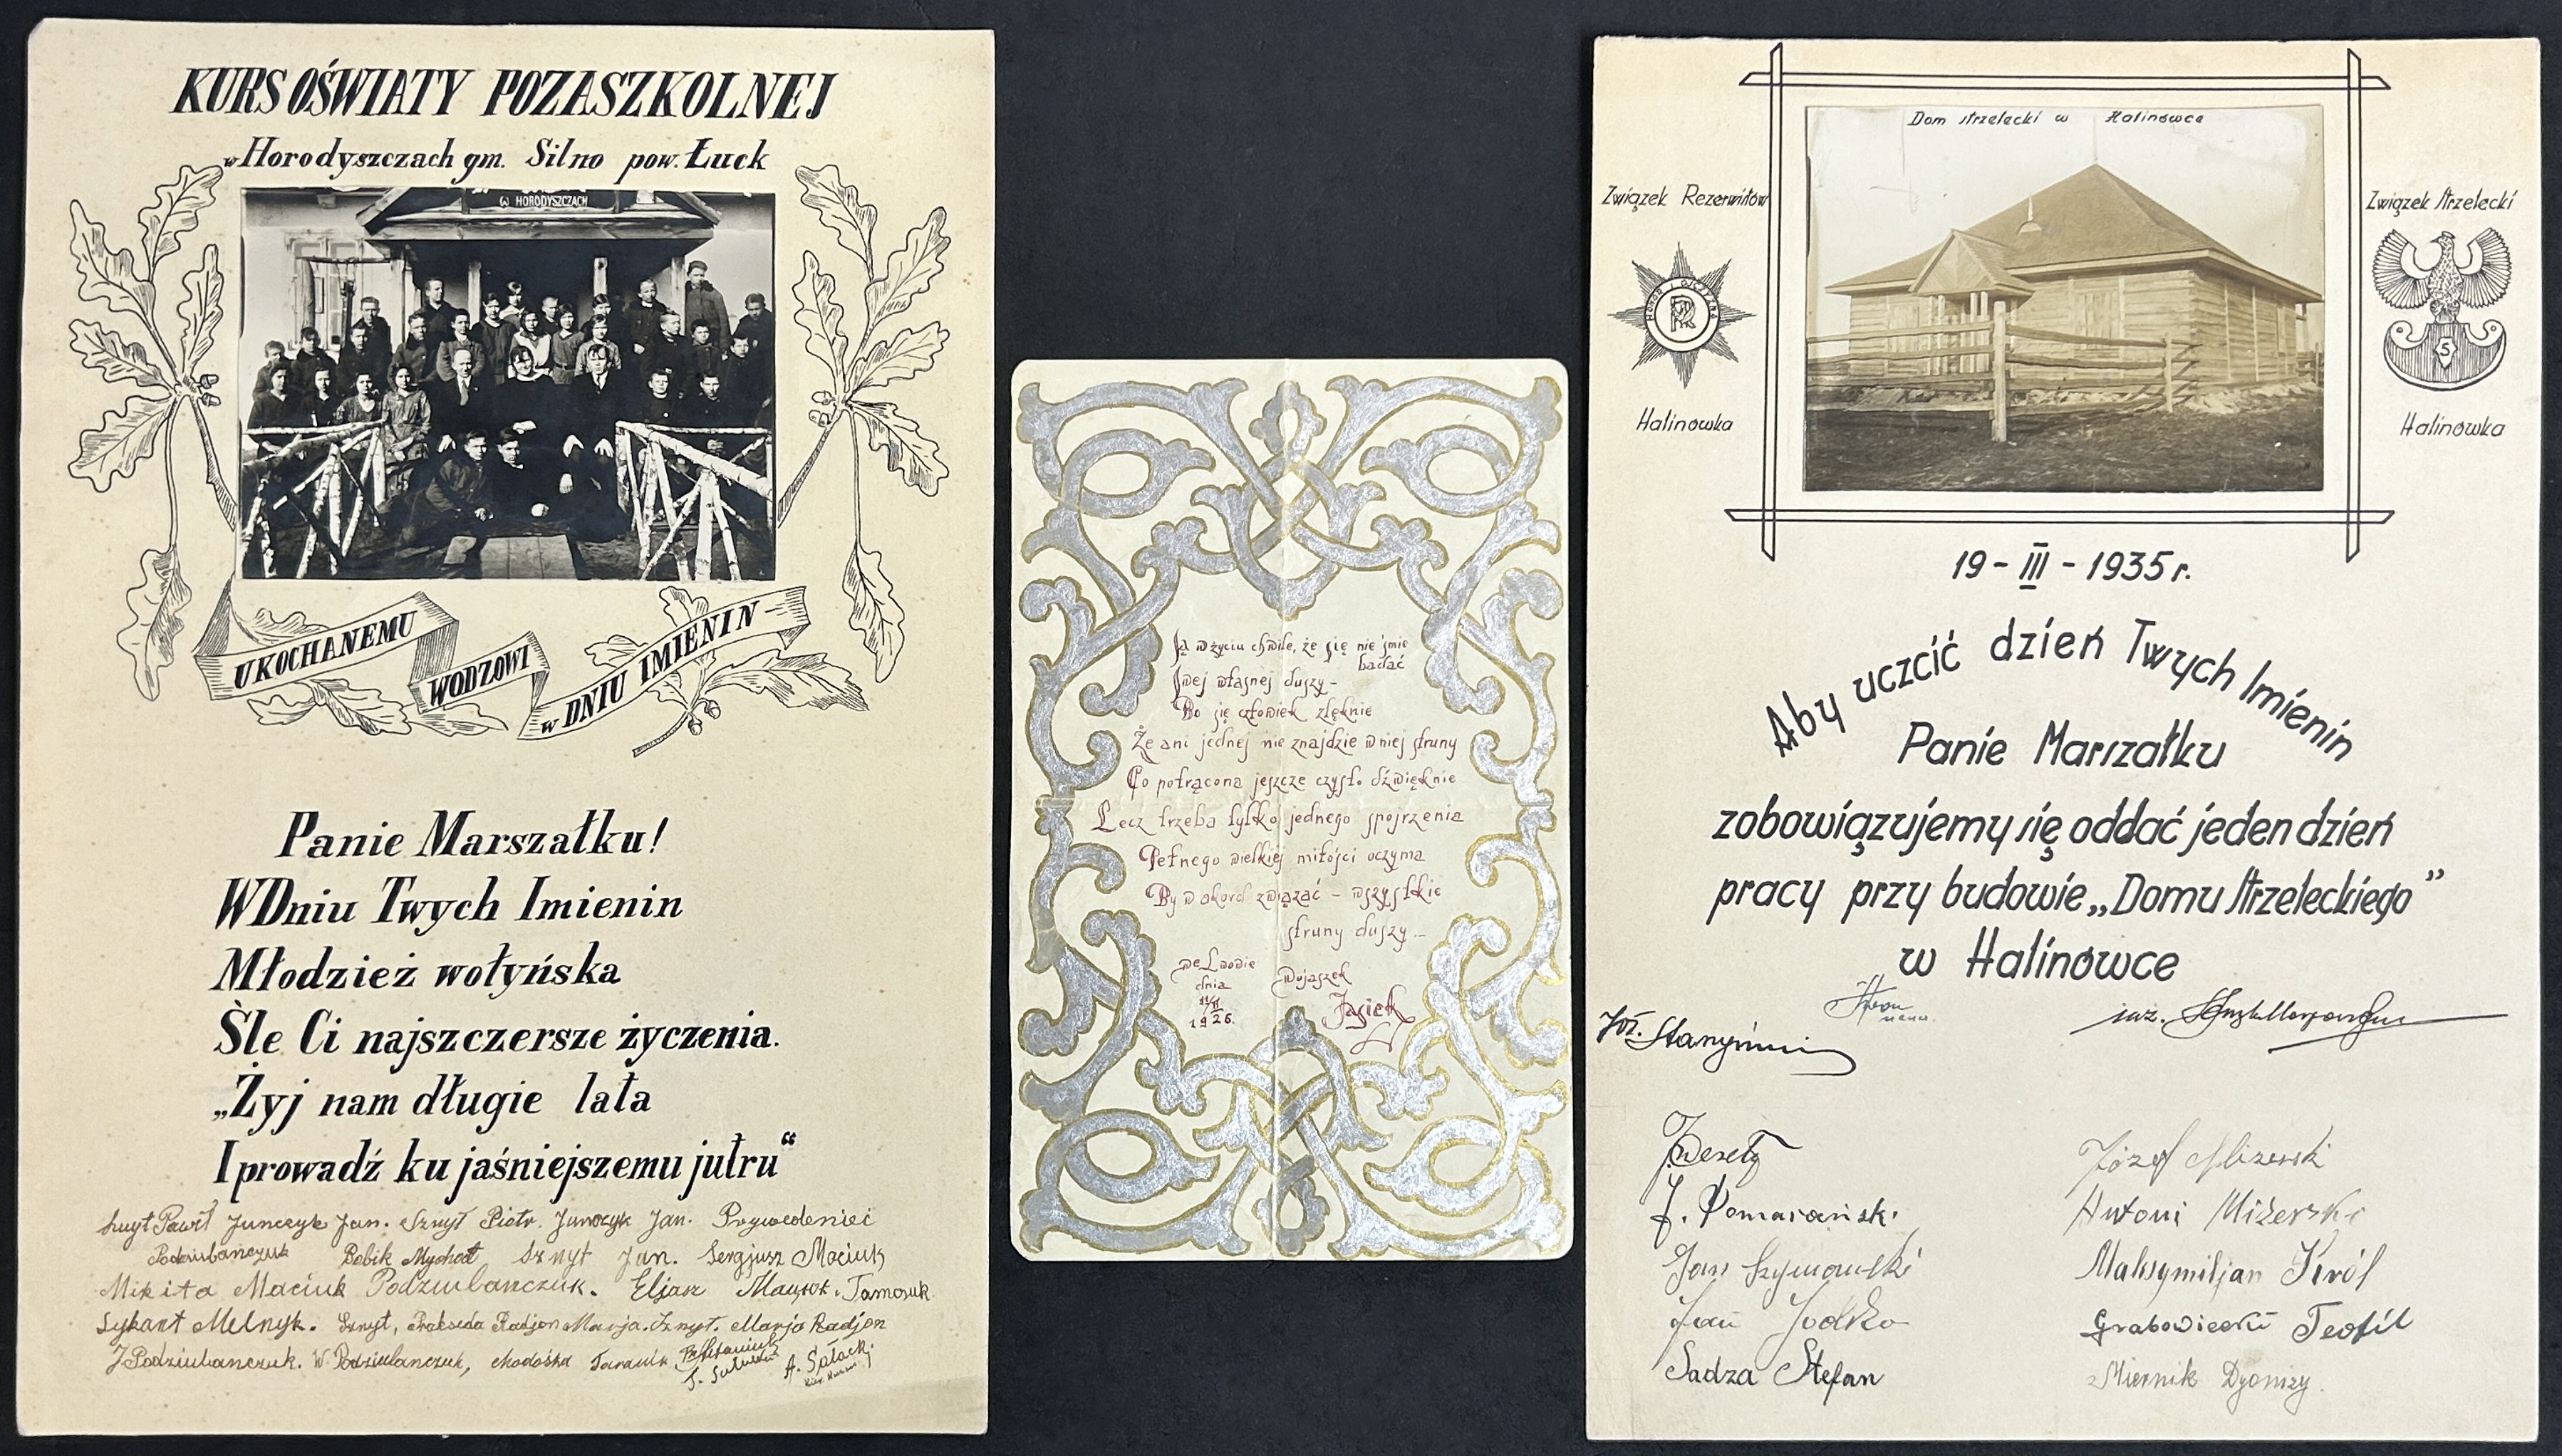 KURS OŚWIATY POZASZKOLNEJ
w Horodyszczach gm. Silno pow. Łuck
W HORODYSZCZACH
UKOCHANEMU
WODZOWI
w DNIU IMIENIN
Panie Marszałku!
W Dniu Twych Imienin
Młodzież wołyńska
Śle Ci najszczersze życzenia.
„Żyj nam długie lata
I prowadź ku jaśniejszemu jutru“
Paweł Junczyk Jan. Sznyt Piotr. Junczyk Jan.
Bobik Sznyt Jan. Sergjusz Maciuk
Mikita Maciuk Podziubanczuk. Eljasz
Melnyk. Sznyt, Radjon Marja. Sznyt. Marja Radjon
J Podziubanczuk. W. Podziubanczuk,
Są w życiu chwile, że się nie śmie
badać
Swej własnej duszy –
Bo się człowiek zlęknie
Że ani jednej nie znajdzie w niej struny
Co potrącona jeszcze czysto dźwięknie
Lecz trzeba tylko jednego spojrzenia
Pełnego wielkiej miłości oczyma
By w akord związać – wszystkie
struny duszy –
we Lwowie
dnia
1926.
Jasiek
Dom strzelecki w Halinówce
Związek Rezerwistów
HONOR I OJCZYZNA
Halinówka
Związek Strzelecki
S
Halinówka
19 – III – 1935 r.
Aby uczcić dzień Twych Imienin
Panie Marszałku
zobowiązujemy się oddać jeden dzień
pracy przy budowie „Domu Strzeleckiego”
w Halinówce
inż.
J. Pomarański
Józef
Antoni Miżerski
Jan Szymański
Maksymiljan Król
Jan Jodko
Teofil
Sadza Stefan
Miernik Dyonizy